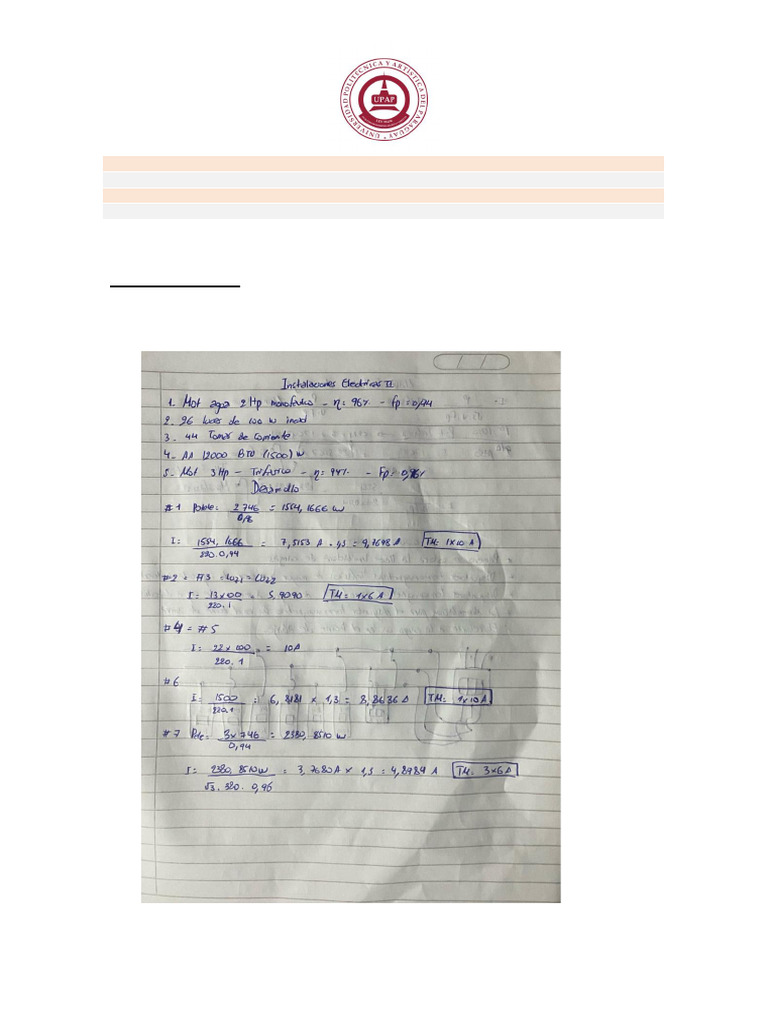 UNIVERSIDAD POLITÉCNICA Y ARTÍSTICA DEL PARAGUAY
UPAP
Instalaciones Electricas II
1. Mot agua 2 Hp monofasico - η: 96% - fp = 0,94
2. 26 luces de 100 W incad
3. 44 Tomas de corriente
4. AA 12000 BTU (1500) W
5. Mot 3 Hp - Trifasico - η = 94% - Fp = 0,96%
Desarrollo
#1 Potele: 2 746 / 0,96 = 1554,1666 W
I: 1554,1666 / 220.0,94 = 7,5153 A . 1,3 = 9,7698 A TM: 1x10 A
#2 = #3 = Luz1 = Luz2
I = 13x100 / 220.1 = 5,9090 TM: 1x6 A
#4 = #5
I: 22x100 / 220.1 = 10A
#6
I: 1500 / 220.1 = 6,8181 x 1,3 = 8,8636 A TM: 1x10 A
#7 Pote: 3x746 / 0,94 = 2380,8510 W
I: 2380,8510 W / √3 . 380 . 0,96 = 3,7680 A x 1,3 = 4,8984 A TM: 3x6 A